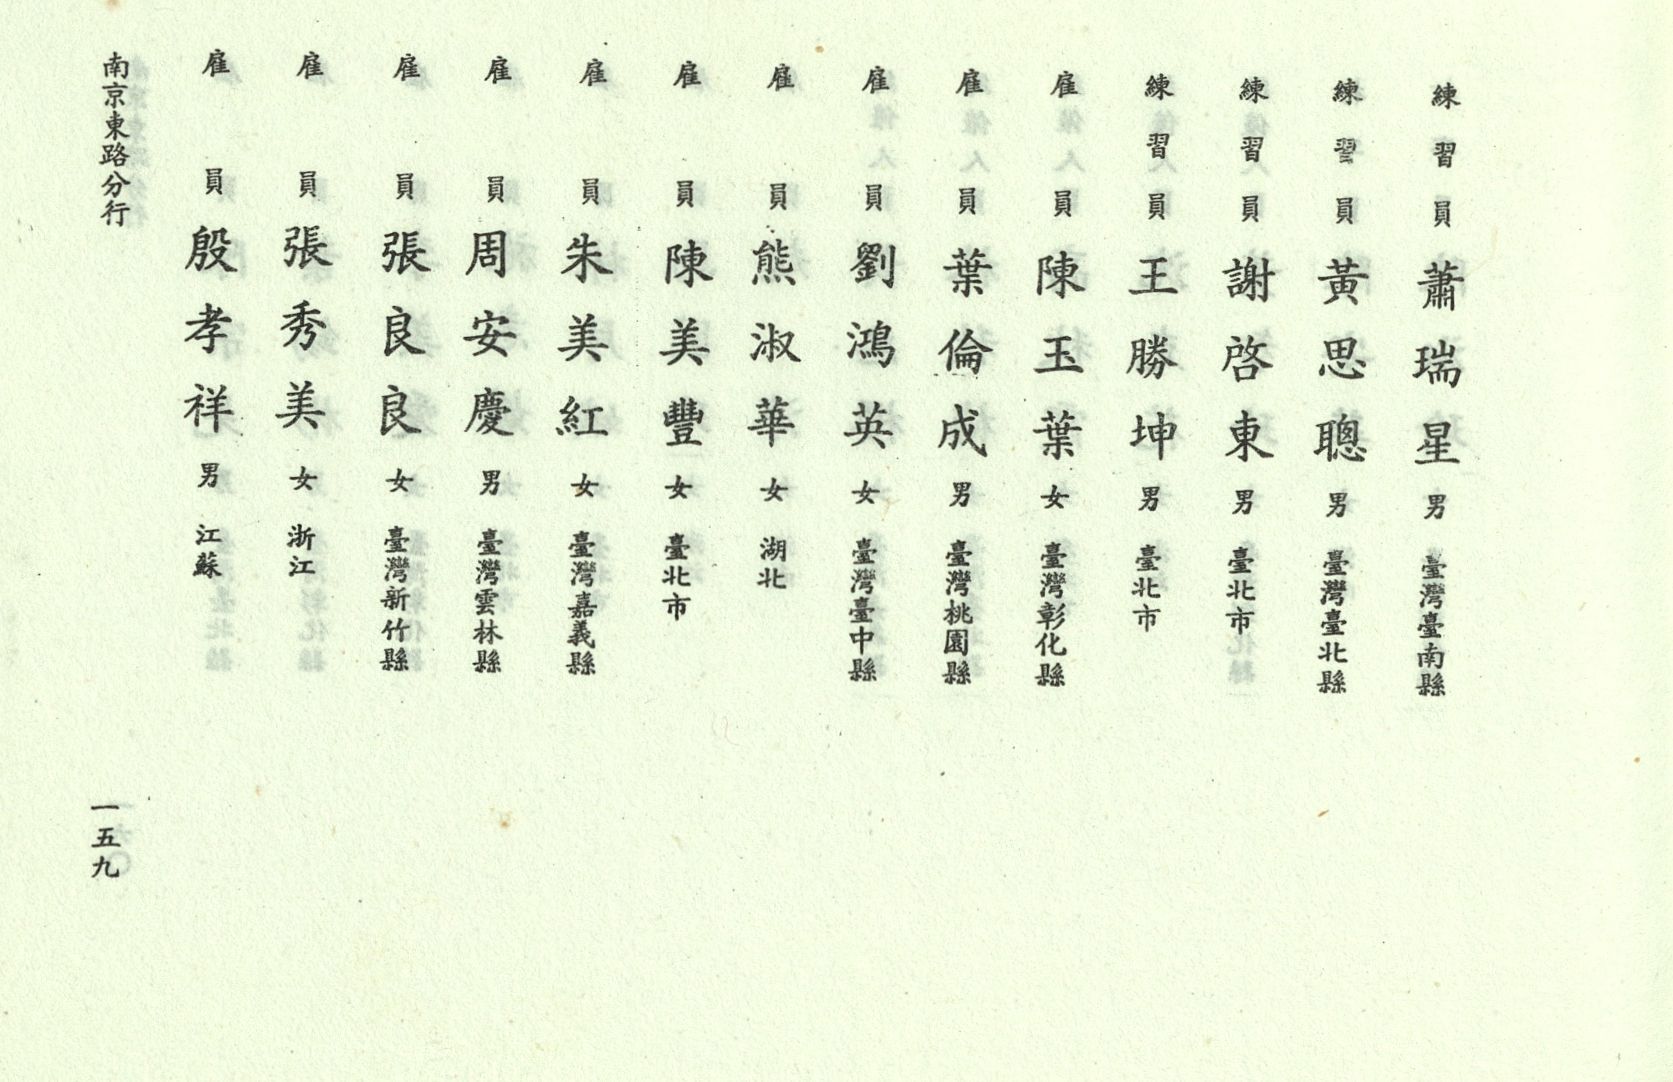 練習員 蕭瑞星 男 臺灣臺南縣
練習員 黃思聰 男 臺灣臺北縣
練習員 謝啓東 男 臺北市
練習員 王勝坤 男 臺北市
雇員 陳玉葉 女 臺灣彰化縣
雇員 葉倫成 男 臺灣桃園縣
雇員 劉鴻英 女 臺灣臺中縣
雇員 熊淑華 女 湖北
雇員 陳美豐 女 臺北市
雇員 朱美紅 女 臺灣嘉義縣
雇員 周安慶 男 臺灣雲林縣
雇員 張良良 女 臺灣新竹縣
雇員 張秀美 女 浙江
雇員 殷孝祥 男 江蘇
南京東路分行
一五九